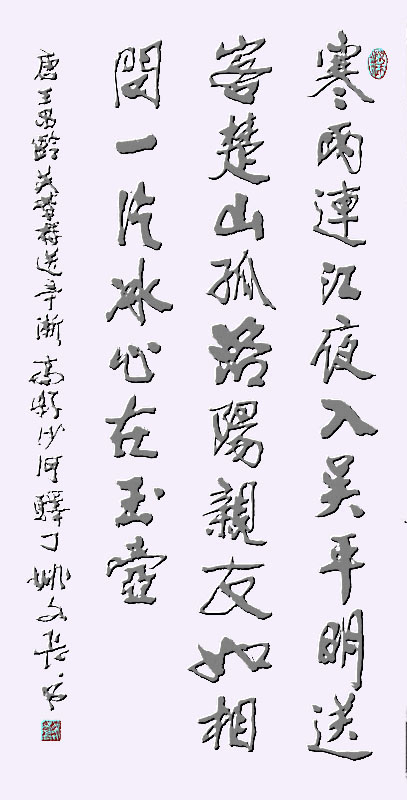 寒雨連江夜入吴平明送
客楚山孤洛陽親友如相
問一片冰心在玉壺
唐王昌齡芙蓉樓送辛漸 高郵沙河驛丁 姚文長书